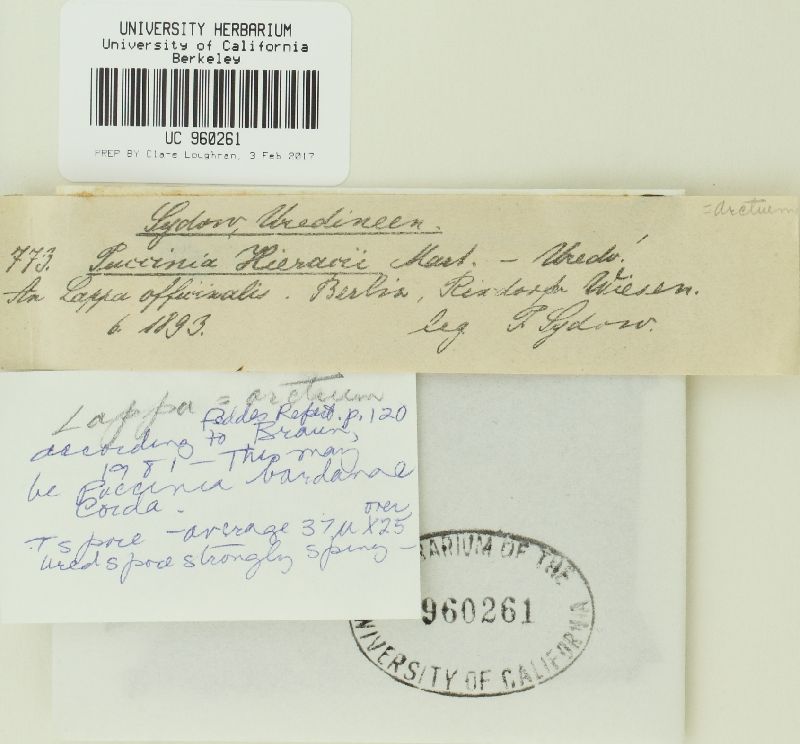 UNIVERSITY HERBARIUM
University of California
Berkeley
UC 960261
PREP BY Clare Loughran, 3 Feb 2017
= arctium
Sydow, Uredineen.
773. Puccinia Hieracii Mart. - Uredo!
An Lappa officinalis. Berlin, Rixdorfer Wiesen.
6. 1893. leg. P. Sydow.
Lappa = arctium
Feddes Repert. p. 120
according to Braun,
1981 - This may
be Puccinia bardanae
Corda.
over
T spore - average 37µ X 25
Ured spore strongly spiny -
HERBARIUM OF THE
960261
UNIVERSITY OF CALIFORNIA